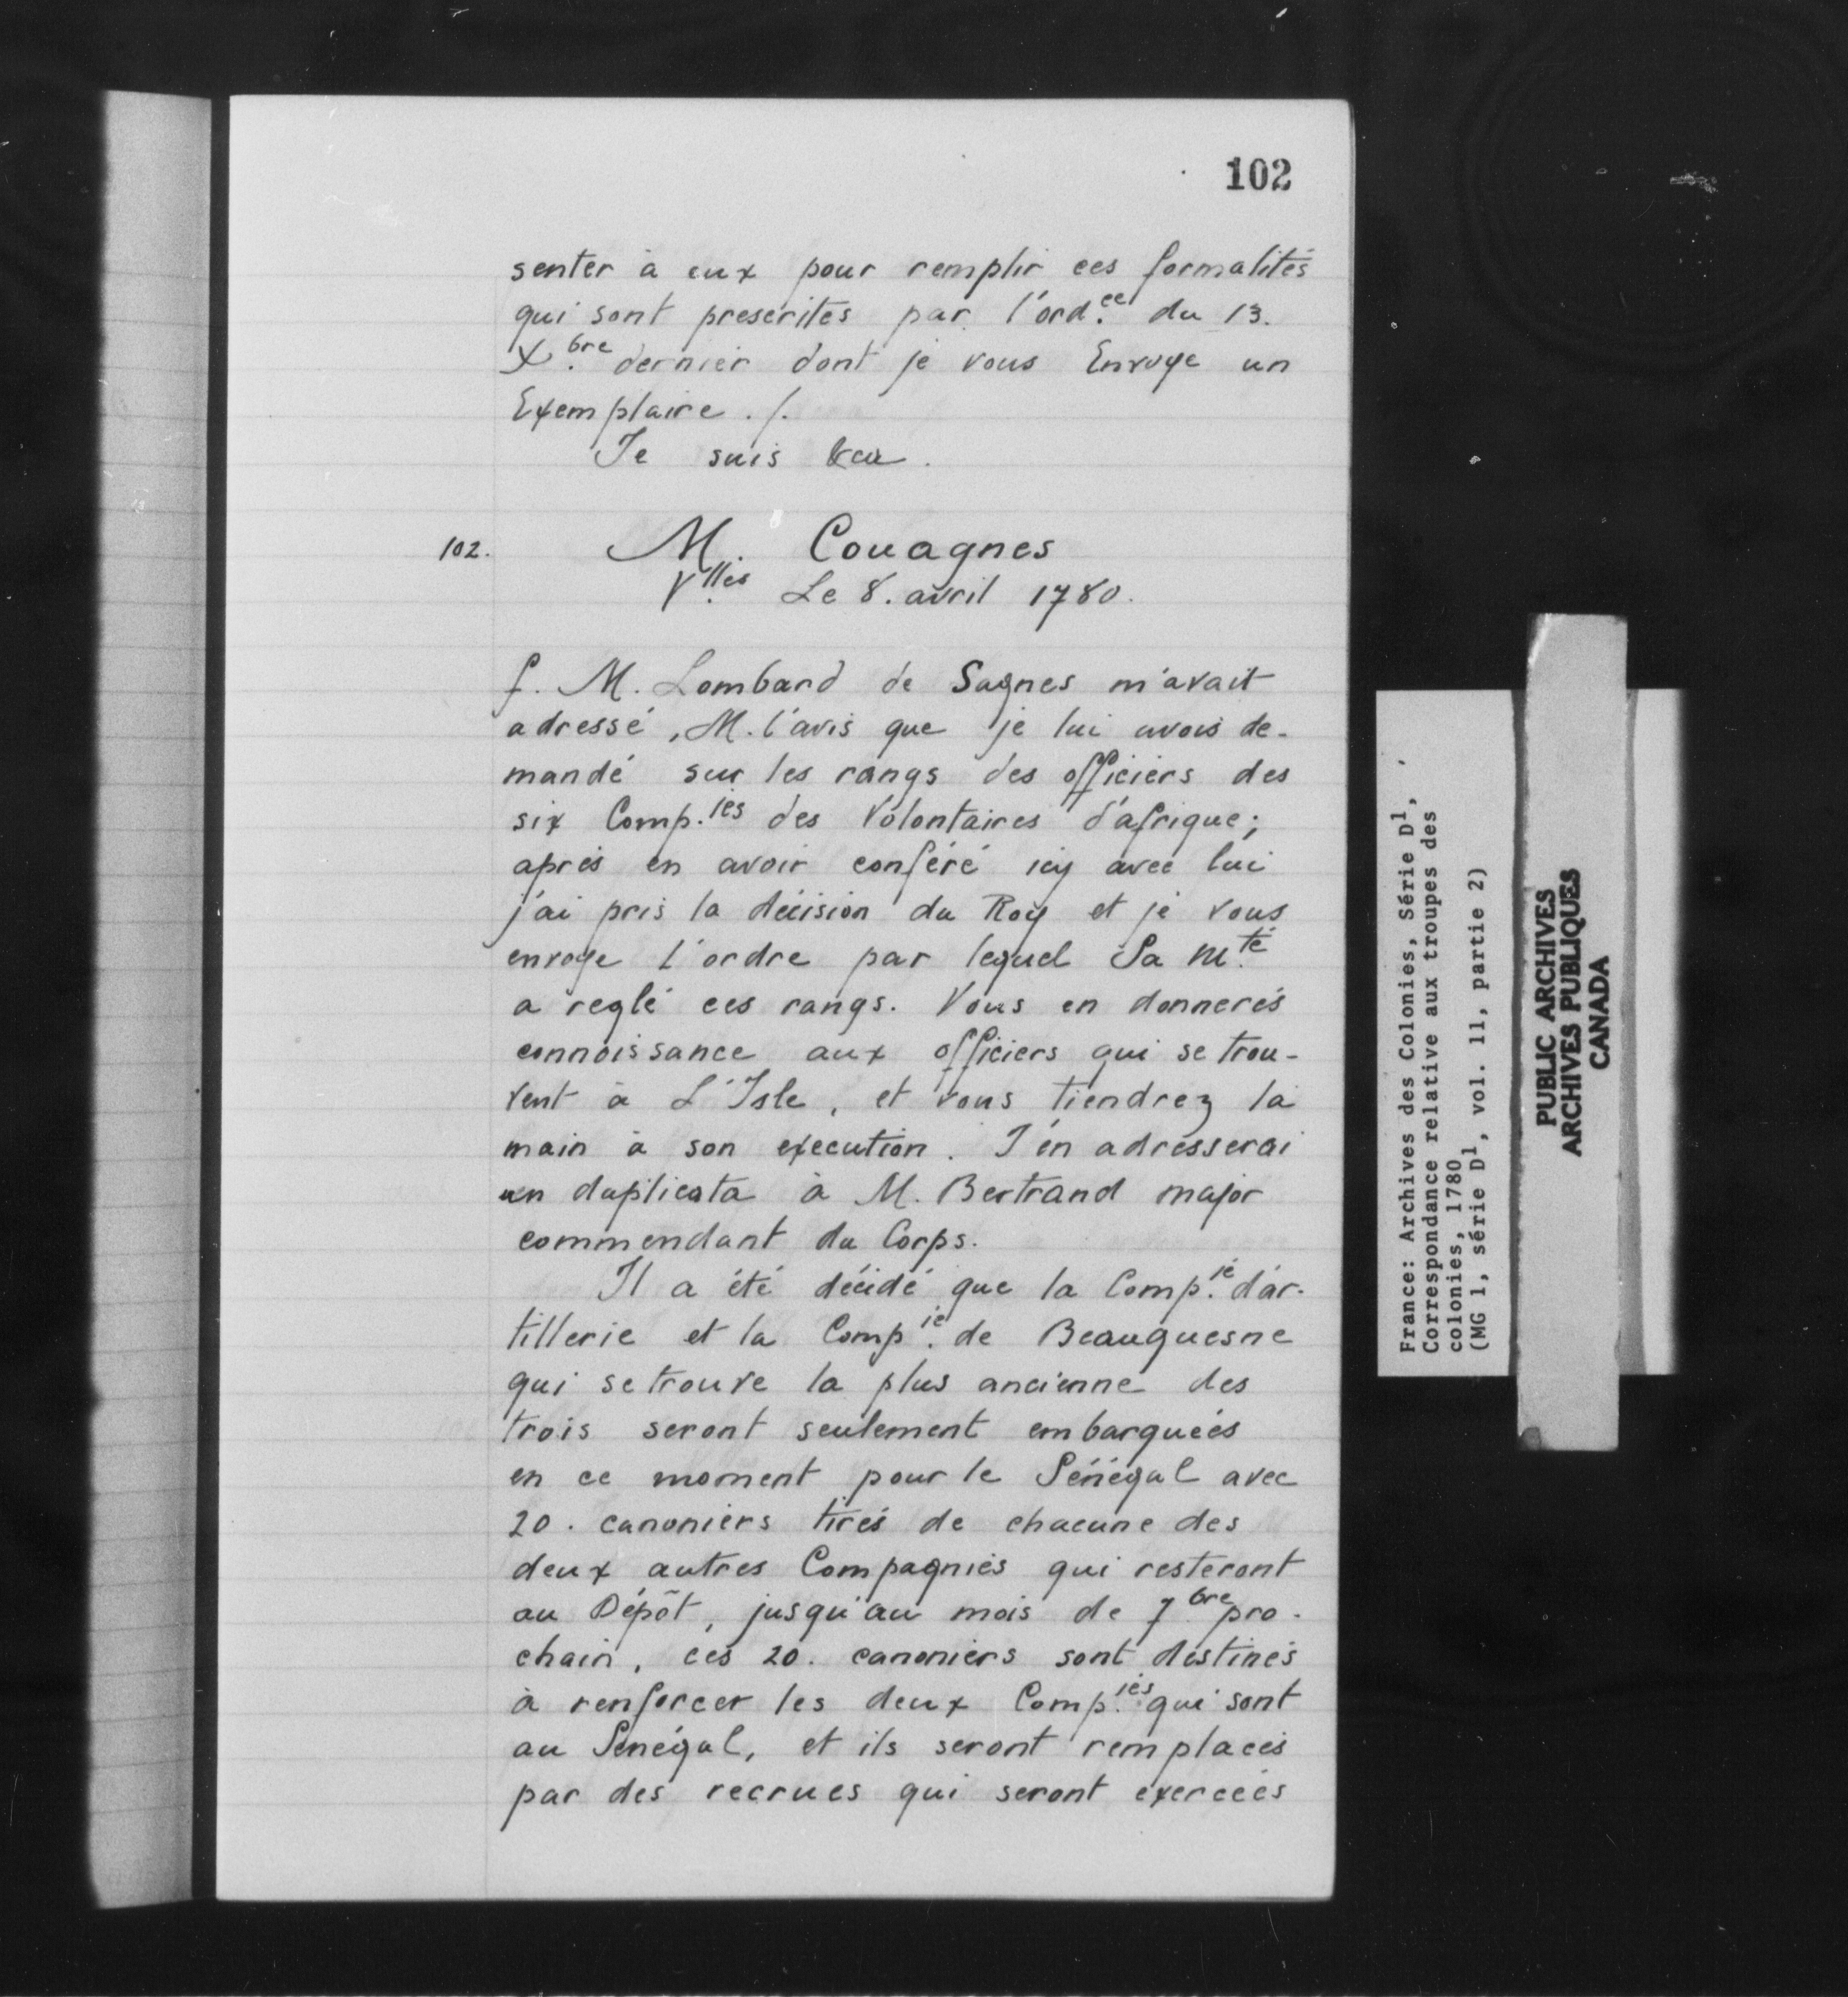 102
senter à eux pour remplir ces formalités
qui sont prescrites par l'ord.ce du 13.
X.bre dernier dont je vous Envoye un
Exemplaire ./.
Je suis &ca.
102.
M. Couagnes
V.lles Le 8. avril 1780.
f. M. Lombard de Sagnes m'avait
adressé, M. l'avis que je lui avois de-
mandé sur les rangs des officiers des
six Comp.ies des Volontaires d'afrique;
après en avoir conféré icy avec lui
j'ai pris la décision du Roy et je vous
envoye l'ordre par lequel Sa M.té
a reglé ces rangs. Vous en donnerés
connoissance aux officiers qui se trou-
vent à L'Isle, et vous tiendrez la
main à son execution. J'en adresserai
un duplicata à M. Bertrand major
commendant du Corps.
Il a été décidé que la Comp.ie d'ar-
tillerie et la Comp.ie de Beauquesne
qui se trouve la plus ancienne des
trois seront seulement embarquées
en ce moment pour le Sénégal avec
20. canoniers tirés de chacune des
deux autres Compagnies qui resteront
au Dépôt, jusqu'au mois de 7bre pro-
chain, ces 20. canoniers sont destinés
à renforcer les deux Comp.ies qui sont
au Senégal, et ils seront remplacés
par des recrues qui seront exercées
France: Archives des Colonies, Série D1,
Correspondance relative aux troupes des
colonies, 1780
(MG 1, série D1, vol. 11, partie 2)
PUBLIC ARCHIVES
ARCHIVES PUBLIQUES
CANADA